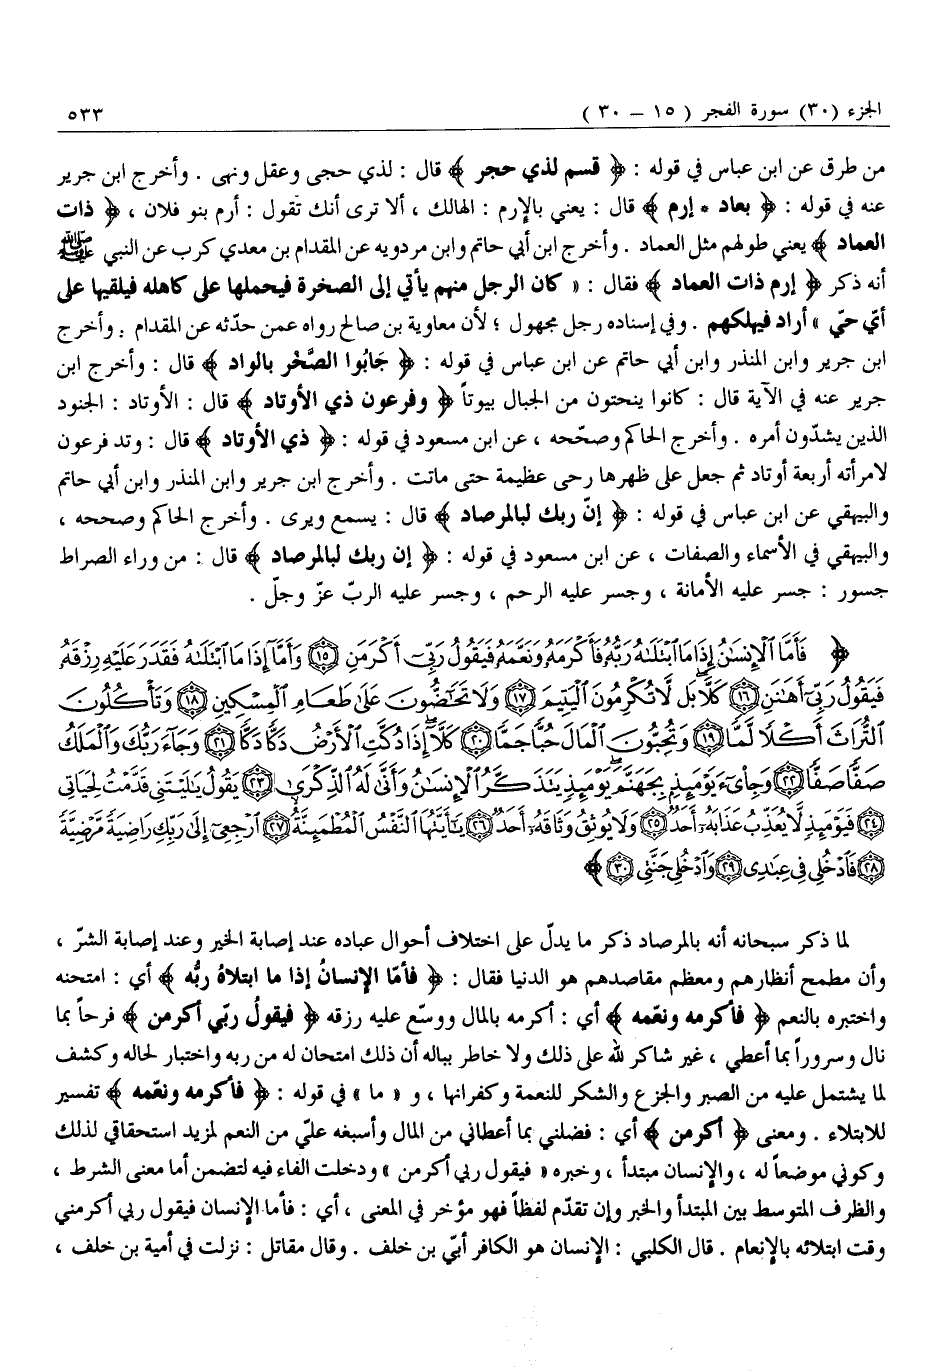 الجزء (٣٠) سورة الفجر ( ١٥ – ٣٠ ) ٥٣٣
من طرق عن ابن عباس في قوله : ﴿ قسم لذي حجر ﴾ قال : لذي حجى وعقل ونهى . وأخرج ابن جرير
عنه في قوله : ﴿ بعاد * إرم ﴾ قال : يعني بالإرم : الهالك ، ألا ترى أنك تقول : أرم بنو فلان ، ﴿ ذات
العماد ﴾ يعني طولهم مثل العماد . وأخرج ابن أبي حاتم وابن مردويه عن المقدام بن معدي كرب عن النبي ﷺ
أنه ذكر ﴿ إرم ذات العماد ﴾ فقال : « كان الرجل منهم يأتي إلى الصخرة فيحملها على كاهله فيلقيها على
أيّ حيّ » أراد فيهلكهم . وفي إسناده رجل مجهول ؛ لأن معاوية بن صالح رواه عمن حدّثه عن المقدام . وأخرج
ابن جرير وابن المنذر وابن أبي حاتم عن ابن عباس في قوله : ﴿ جَابُوا الصَّخْر بالواد ﴾ قال : وأخرج ابن
جرير عنه في الآية قال : كانوا ينحتون من الجبال بيوتاً ﴿ وفرعون ذي الأوتاد ﴾ قال : الأوتاد : الجنود
الذين يشدّون أمره . وأخرج الحاكم وصحّحه ، عن ابن مسعود في قوله : ﴿ ذي الأوتاد ﴾ قال : وتد فرعون
لامرأته أربعة أوتاد ثم جعل على ظهرها رحى عظيمة حتى ماتت . وأخرج ابن جرير وابن المنذر وابن أبي حاتم
والبيهقي عن ابن عباس في قوله : ﴿ إنّ ربك لبالمرصاد ﴾ قال : يسمع ويرى . وأخرج الحاكم وصححه ،
والبيهقي في الأسماء والصفات ، عن ابن مسعود في قوله : ﴿ إن ربك لبالمرصاد ﴾ قال : من وراء الصراط
جسور : جسر عليه الأمانة ، وجسر عليه الرحم ، وجسر عليه الربّ عزّ وجلّ .
﴿ فَأَمَّا ٱلْإِنسَٰنُ إِذَا مَا ٱبْتَلَىٰهُ رَبُّهُۥ فَأَكْرَمَهُۥ وَنَعَّمَهُۥ فَيَقُولُ رَبِّىٓ أَكْرَمَنِ ﴿١٥﴾ وَأَمَّآ إِذَا مَا ٱبْتَلَىٰهُ فَقَدَرَ عَلَيْهِ رِزْقَهُۥ
فَيَقُولُ رَبِّىٓ أَهَٰنَنِ ﴿١٦﴾ كَلَّا ۖ بَل لَّا تُكْرِمُونَ ٱلْيَتِيمَ ﴿١٧﴾ وَلَا تَحَٰٓضُّونَ عَلَىٰ طَعَامِ ٱلْمِسْكِينِ ﴿١٨﴾ وَتَأْكُلُونَ
ٱلتُّرَاثَ أَكْلًا لَّمًّا ﴿١٩﴾ وَتُحِبُّونَ ٱلْمَالَ حُبًّا جَمًّا ﴿٢٠﴾ كَلَّآ إِذَا دُكَّتِ ٱلْأَرْضُ دَكًّا دَكًّا ﴿٢١﴾ وَجَآءَ رَبُّكَ وَٱلْمَلَكُ
صَفًّا صَفًّا ﴿٢٢﴾ وَجِا۟ىٓءَ يَوْمَئِذٍۭ بِجَهَنَّمَ ۚ يَوْمَئِذٍ يَتَذَكَّرُ ٱلْإِنسَٰنُ وَأَنَّىٰ لَهُ ٱلذِّكْرَىٰ ﴿٢٣﴾ يَقُولُ يَٰلَيْتَنِى قَدَّمْتُ لِحَيَاتِى
﴿٢٤﴾ فَيَوْمَئِذٍ لَّا يُعَذِّبُ عَذَابَهُۥٓ أَحَدٌ ﴿٢٥﴾ وَلَا يُوثِقُ وَثَاقَهُۥٓ أَحَدٌ ﴿٢٦﴾ يَٰٓأَيَّتُهَا ٱلنَّفْسُ ٱلْمُطْمَئِنَّةُ ﴿٢٧﴾ ٱرْجِعِىٓ إِلَىٰ رَبِّكِ رَاضِيَةً مَّرْضِيَّةً
﴿٢٨﴾ فَٱدْخُلِى فِى عِبَٰدِى ﴿٢٩﴾ وَٱدْخُلِى جَنَّتِى ﴿٣٠﴾ ﴾
لما ذكر سبحانه أنه بالمرصاد ذكر ما يدلّ على اختلاف أحوال عباده عند إصابة الخير وعند إصابة الشرّ ،
وأن مطمح أنظارهم ومعظم مقاصدهم هو الدنيا فقال : ﴿ فأمّا الإنسانُ إذا ما ابتلاهُ ربُّه ﴾ أي : امتحنه
واختبره بالنعم ﴿ فأكرمه ونعّمه ﴾ أي : أكرمه بالمال ووسّع عليه رزقه ﴿ فيقولُ ربّي أكرمن ﴾ فرحاً بما
نال وسروراً بما أعطي ، غير شاكر لله على ذلك ولا خاطر بباله أن ذلك امتحان له من ربه واختبار لحاله وكشف
لما يشتمل عليه من الصبر والجزع والشكر للنعمة وكفرانها ، و « ما » في قوله : ﴿ فأكرمه ونعّمه ﴾ تفسير
للابتلاء . ومعنى ﴿ أكرمن ﴾ أي : فضلني بما أعطاني من المال وأسبغه عليّ من النعم لمزيد استحقاقي لذلك
وكوني موضعاً له ، والإنسان مبتدأ ، وخبره « فيقول ربي أكرمن » ودخلت الفاء فيه لتضمن أما معنى الشرط ،
والظرف المتوسط بين المبتدأ والخبر وإن تقدّم لفظاً فهو مؤخر في المعنى ، أي : فأما الإنسان فيقول ربي أكرمني
وقت ابتلائه بالإنعام . قال الكلبي : الإنسان هو الكافر أبيّ بن خلف . وقال مقاتل : نزلت في أمية بن خلف ،